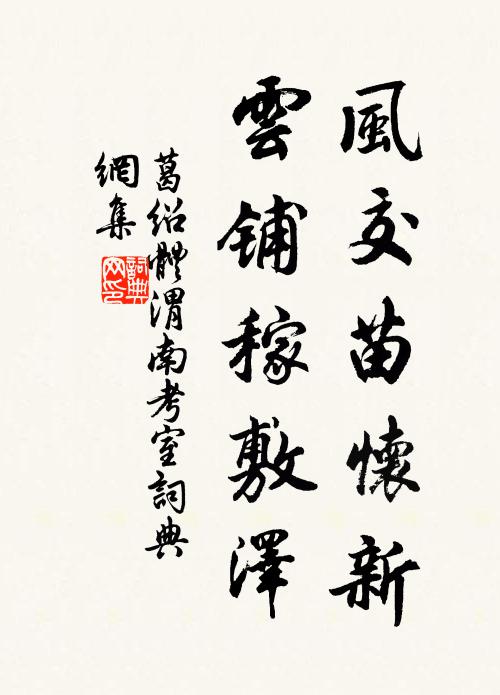 風交苗懷新
雲鋪稼敷澤
葛紹體渭南考室詞典
網集
詞典網印